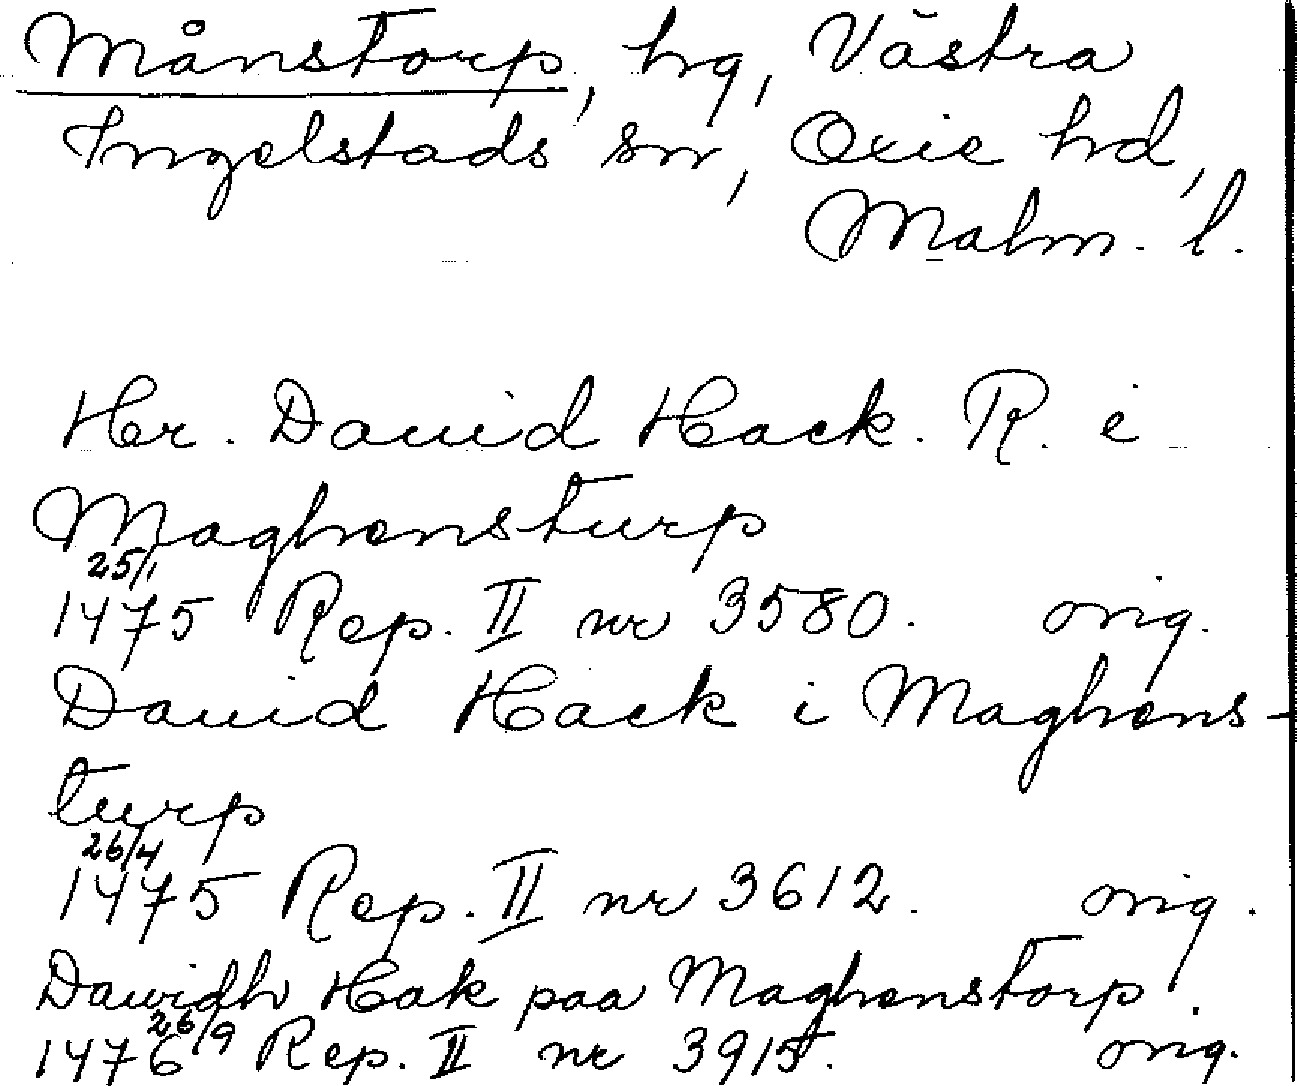 Månstorp, hg, Västra
Ingelstads sn, Oxie hd,
Malm. l.
Hr. Dauid Hack. R. i
Maghensturp
25/1
1475 Rep. II nr 3580. orig.
Dauid Hack i Maghens-
turp
26/4
1475 Rep. II nr 3612. orig.
Dawidh Hak paa Maghenstorp.
26/9
1476 Rep. II nr 3915. orig.